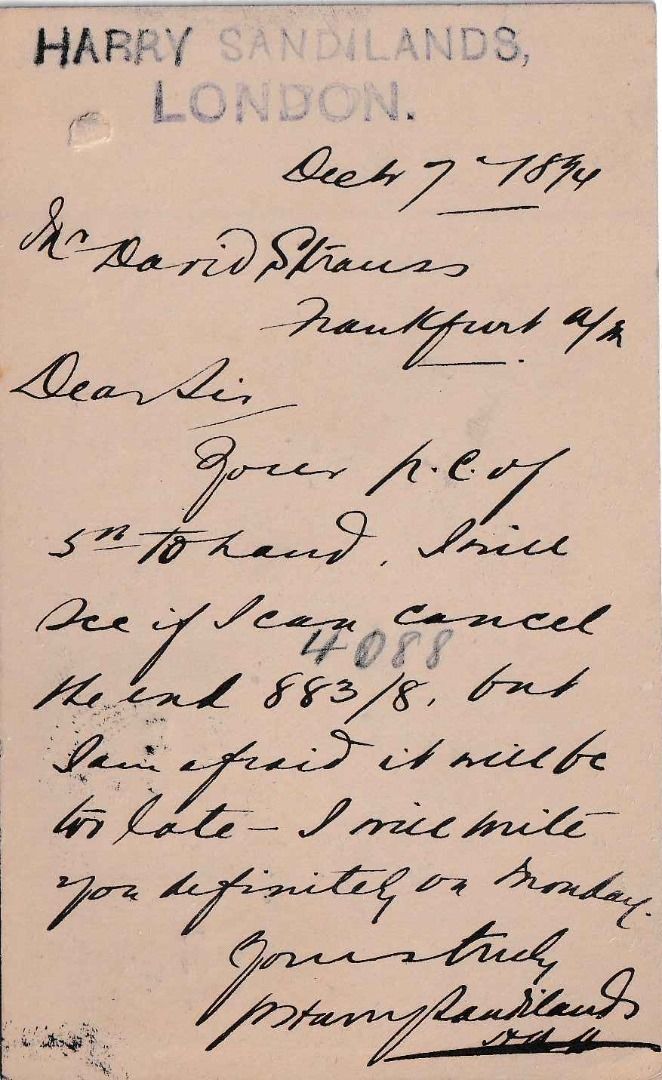 HARRY SANDILANDS,
LONDON.
Decbr 7th 1894
Mr David Strauss
Frankfurt a/M
Dear Sir
Your p.c. of
5th to hand, I will
see if I can cancel
4088
the ind 883/8, but
I am afraid it will be
too late – I will write
you definitely on Monday.
Yours truly
p Harry Sandilands